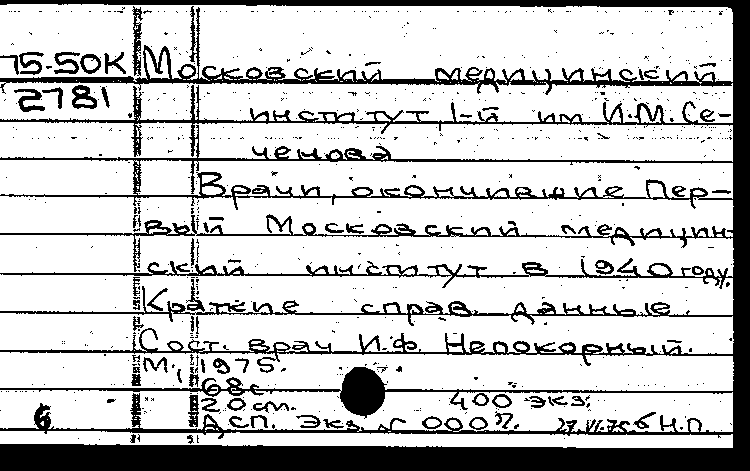 75-50К Московский медицинский
2781
институт, 1-й им И.М. Се-
ченова
Врачи, окончившие Пер-
вый Московский медицин-
ский институт в 1940 году.
Краткие справ. данные.
Сост. врач И.Ф. Непокорный.
М., 1975.
68 с.
20 см. 400 экз.
6 ДСП. Экз. № 000 Н.П.